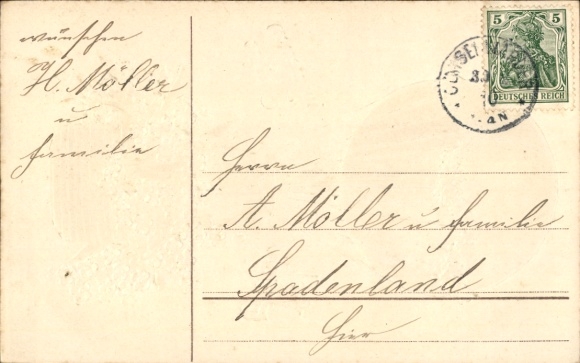 wünschen
H. Möller
u
Familie
5 5
DEUTSCHES REICH
Herrn
A. Möller u Familie
Spadenland
Hier